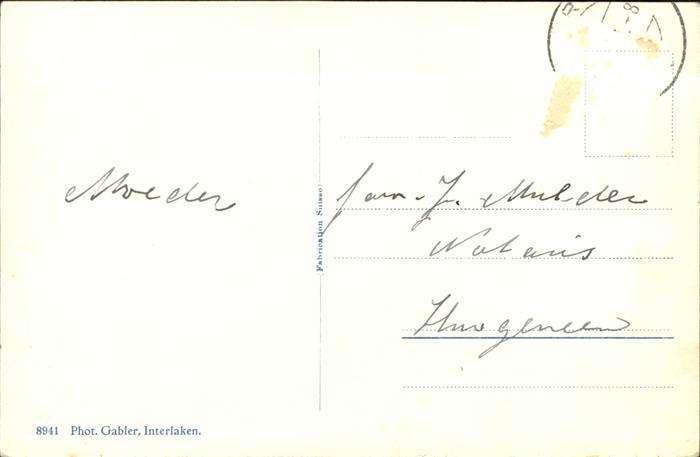 Moeder
fam. J. Mulder
Notaris
Fabrication Suisse
8941 Phot. Gabler, Interlaken.